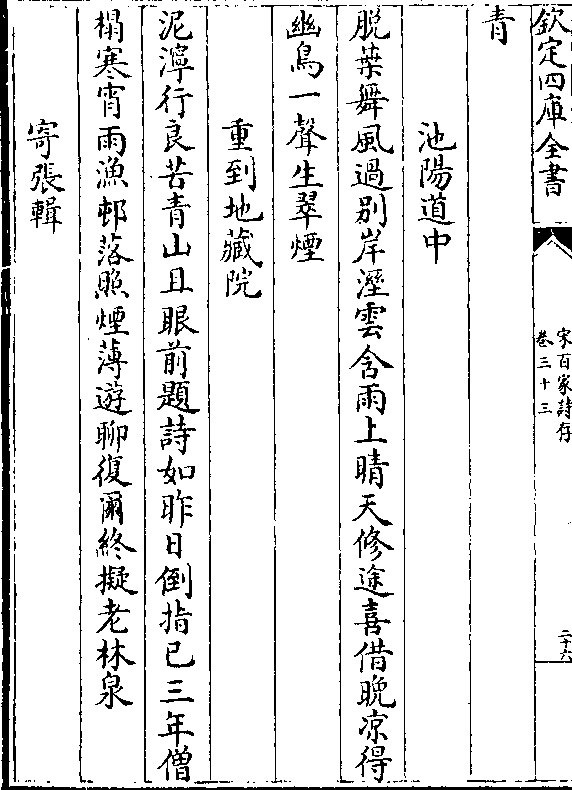 欽定四庫全書
宋百家詩存
卷三十三
二十六
青
池陽道中
脱葉舞風過别岸溼雲含雨上晴天修途喜借晚凉得
幽鳥一聲生翠煙
重到地藏院
泥濘行良苦青山且眼前題詩如昨日倒指已三年僧
榻寒宵雨漁邨落照煙薄遊聊復爾終擬老林泉
寄張輯